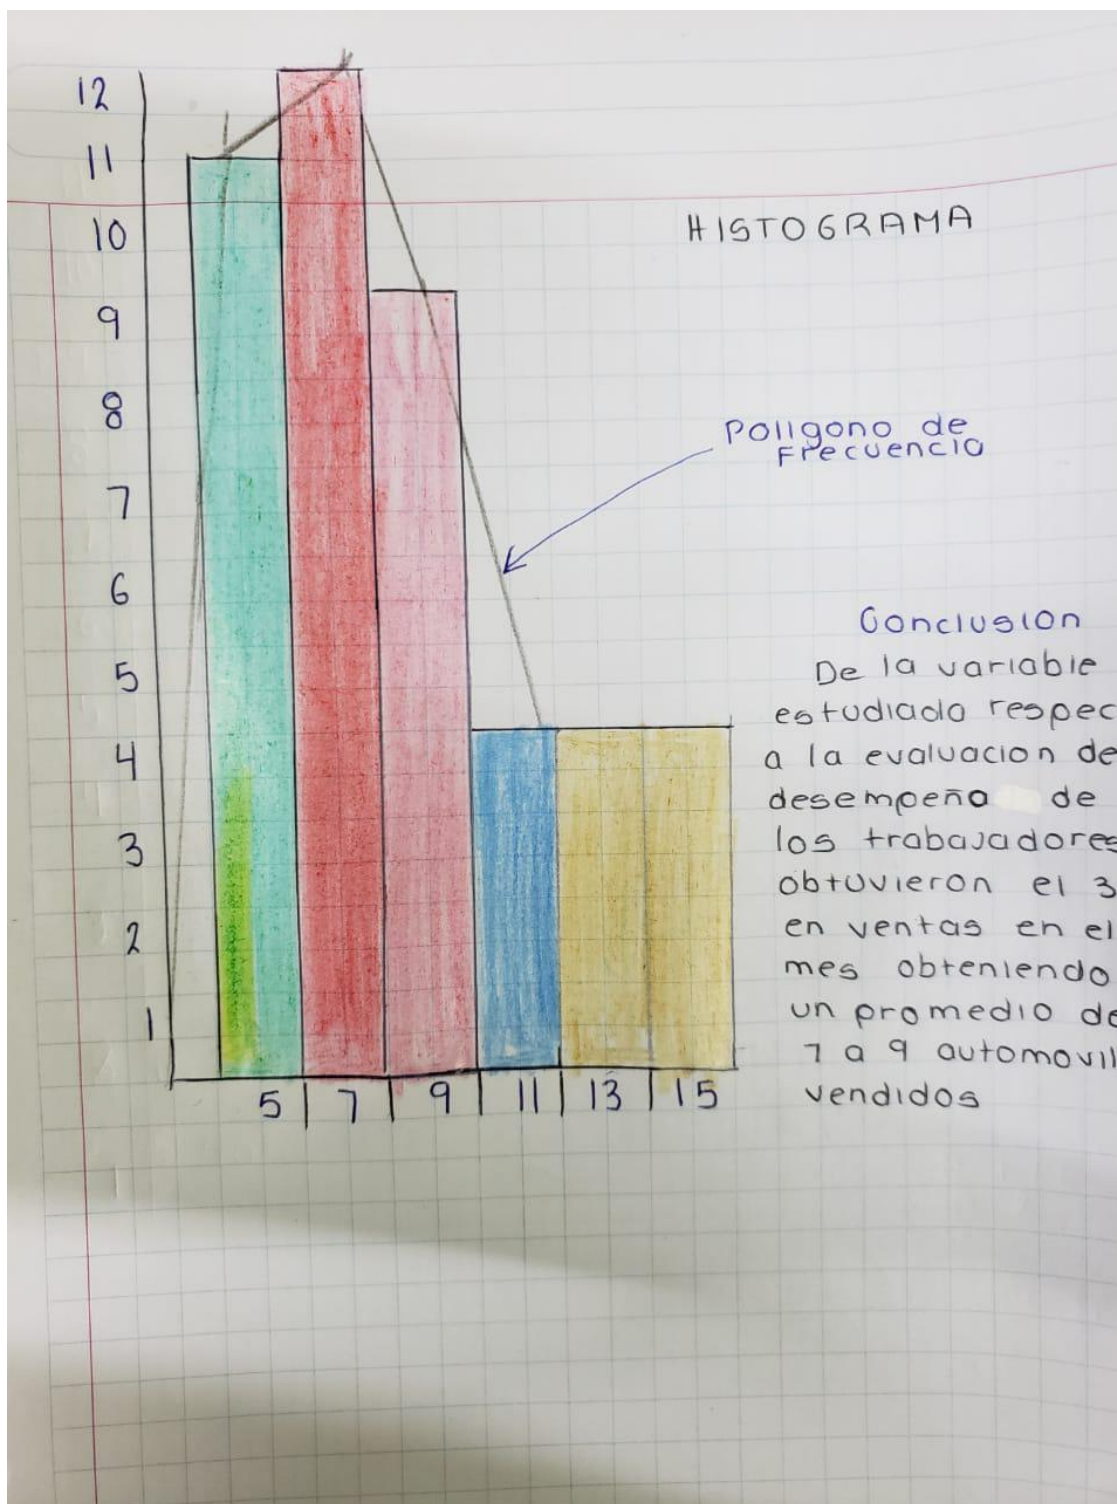 12
11
10
9
8
7
6
5
4
3
2
1
5 | 7 | 9 | 11 | 13 | 15
HISTOGRAMA
Poligono de
Frecuencia
Conclusion
De la variable
estudiada respec
a la evaluacion de
desempeña de
los trabajadores
obtuvieron el 3
en ventas en el
mes obteniendo
un promedio de
7 a 9 automovil
vendidos